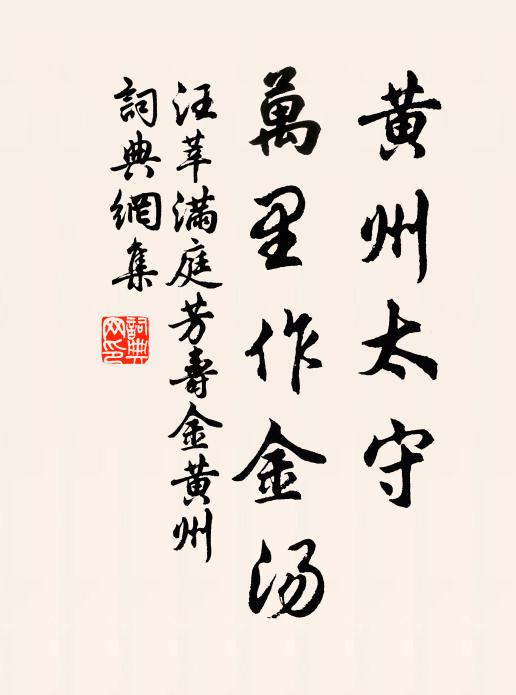 黄州太守
萬里作金湯
汪莘滿庭芳壽金黄州
詞典網集
詞典网印